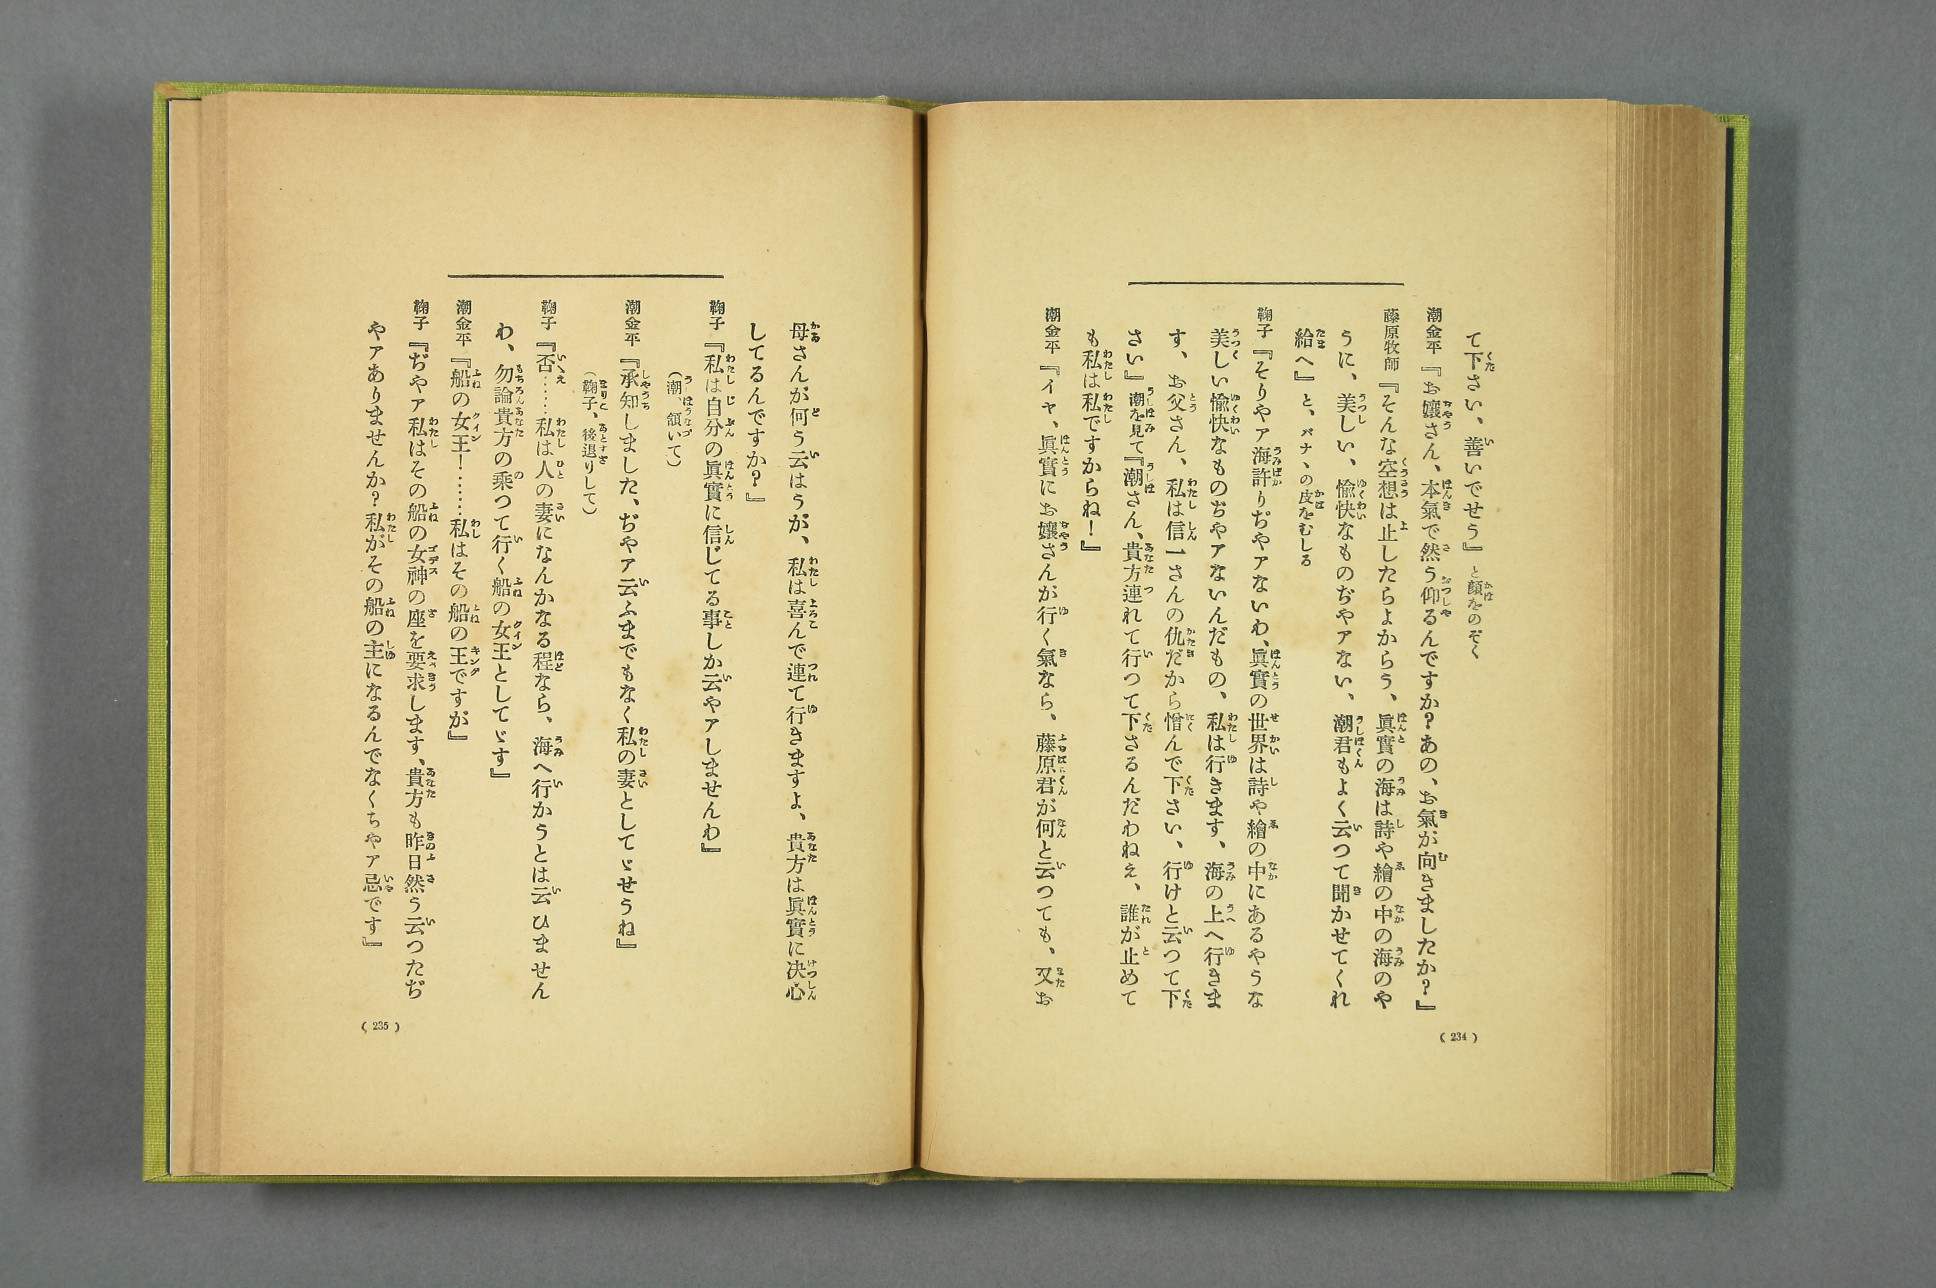 て下さい、善いでせう』と顏をのぞく
潮金平『お孃さん、本氣で然う仰るんですか？あの、お氣が向きましたか？』
藤原牧師『そんな空想は止したらよからう、眞實の海は詩や繪の中の海のや
うに、美しい、愉快なものぢやアない、潮君もよく云つて聞かせてくれ
給へ』と、バナヽの皮をむしる
鞠子『そりやア海許りぢやアないわ、眞實の世界は詩や繪の中にあるやうな
美しい愉快なものぢやアないんだもの、私は行きます、海の上へ行きま
す、お父さん、私は信一さんの仇だから憎んで下さい、行けと云つて下
さい』潮を見て『潮さん、貴方連れて行つて下さるんだわねえ、誰が止めて
も私は私ですからね！』
潮金平『イヤ、眞實にお孃さんが行く氣なら、藤原君が何と云つても、又お
(234)
母さんが何う云はうが、私は喜んで連て行きますよ、貴方は眞實に決心
してるんですか？』
鞠子『私は自分の眞實に信じてる事しか云やアしませんわ』
（潮、頷いて）
潮金平『承知しました、ぢやア云ふまでもなく私の妻としてゞせうね』
（鞠子、後退りして）
鞠子『否……私は人の妻になんかなる程なら、海へ行かうとは云ひません
わ、勿論貴方の乘つて行く船の女王としてゞす』
潮金平『船の女王！……私はその船の王ですが』
鞠子『ぢやア私はその船の女神の座を要求します、貴方も昨日然う云つたぢ
やアありませんか？私がその船の主になるんでなくちやア忌です』
(235)